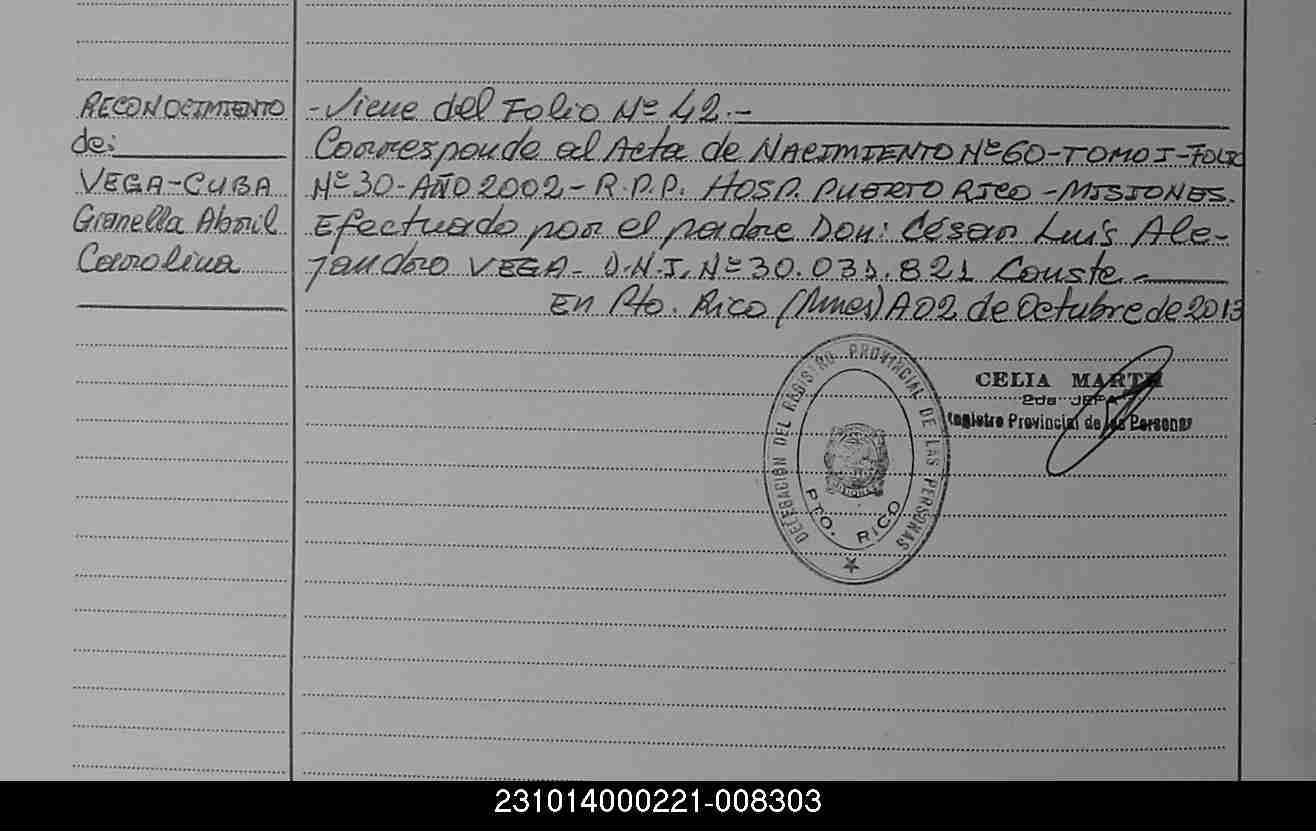 RECONOCIMIENTO
de:
VEGA-CUBA
Gianella Abril
Carolina
-Viene del Folio Nº 42.-
Corresponde al Acta de NACIMIENTO Nº60-TOMO I-FOLIO
Nº30-AÑO 2002-R.P.P. HOSP. PUERTO RICO-MISIONES.
Efectuado por el padre Don: César Luis Ale-
jandro VEGA- D.N.I. Nº30.031.821 Conste.-
En Pto. Rico (Mnes) A 02 de Octubre de 2013
CELIA MARTH
2da JEFA
Registro Provincial de las Personas
DELEGACIÓN DEL REGISTRO PROVINCIAL DE LAS PERSONAS
PTO. RICO
231014000221-008303